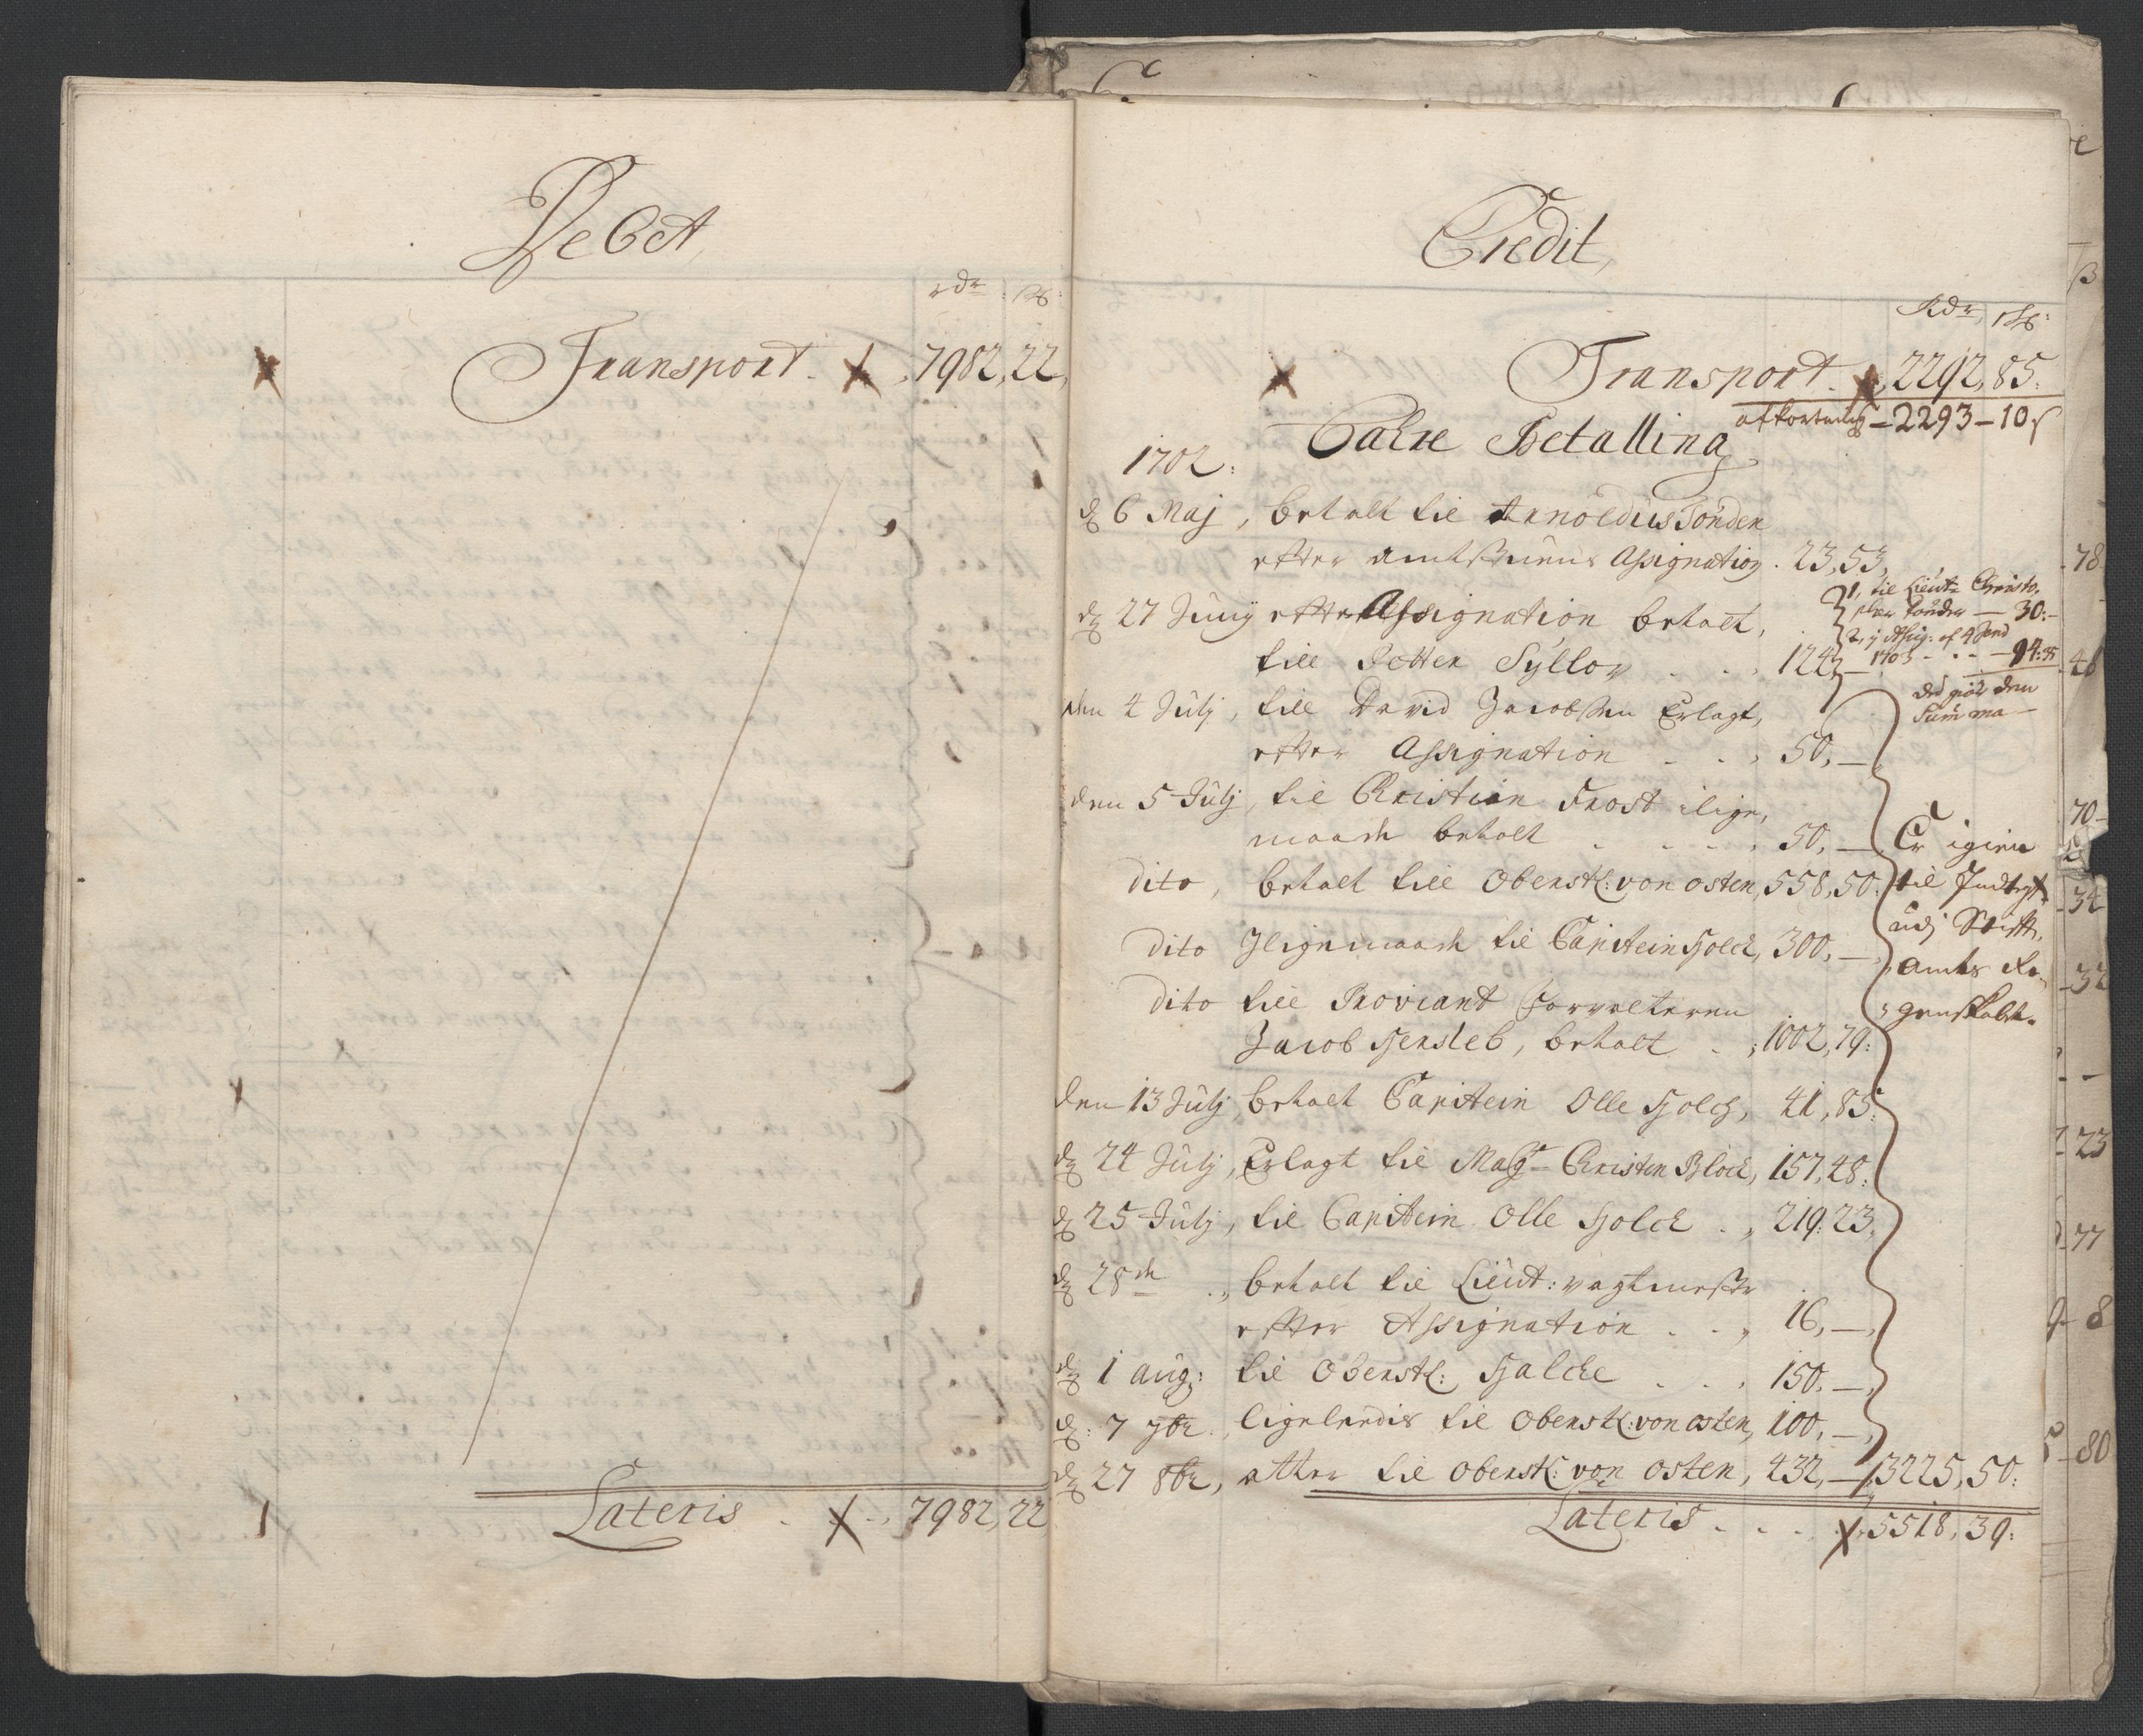 Debet
rdr ß:
Transport . 7982, 22,
Lateris . . 7982, 22
Credit,
Rdr ß:
Transport . 2292, 85:
afkortning – 2293 – 10 ß
1702: Bahre Betalling
d 6 Maj, betalt til Arnoldus Tonder
efter amtstuens Assignation . 23, 53,
d 27 Junij efter Assignation betalt,
till Petter Syltov . . 124
1, til Lieut: Christo,
pher tonder — 30:–
2, 1703 - . . — 94:
det giør den
Summa —
den 4 Julj, till David Jacobsen Erlagt,
efter Assignation . . , 50, —
den 5 Julj, til Christian Frost ilige,
maade betalt . . . . , 50, —
dito, betalt till Oberstl: von osten, 558, 50:
dito Jligemaade til Capitein Holck, 300, —
dito till Proviant Forvalteren
Jacob Hersleb, betalt . , 1002, 79:
den 13 Julj betalt Capitein Olle Holck, 41, 85:
d 24 Julj, Erlagt til Magr Christen Block, 157, 48:
d 25 Julj, til Capitein Olle Holck . , 219. 23,
d 28de . , betalt til Lieut: vagtmester
efter Assignation . . , 16, —,
d 1 aug: til Oberstl: Halcke . . . , 150, —,
d: 7 7br. ligeledis til Oberstl: von osten, 100, —,
d 27 8br, atter til Oberstl: von osten, 432, — 3225, 50:
Er igien
til Indtegt
udj Stifts,
amts Re,
genskabet.
Lateris . . . . 5518, 39: